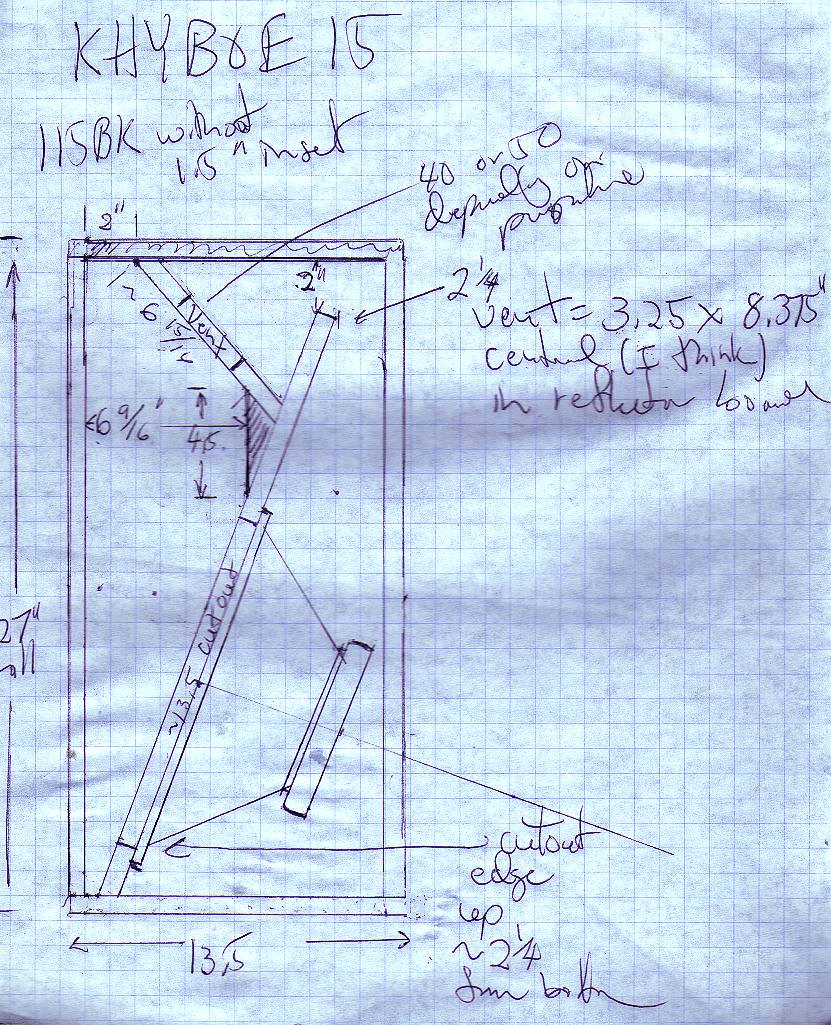 KHYBOE 15
115BK without
1.5" inset
40 or 50
depending on
2"
2"
2 1/4
vent = 3.25 x 8.375"
central (I think)
in reflector board
~ 6 15/16
Vent
6 9/16"
4.5
~13.5 cutout
27"
cutout
edge
up
~2 1/4
from bottom
13.5